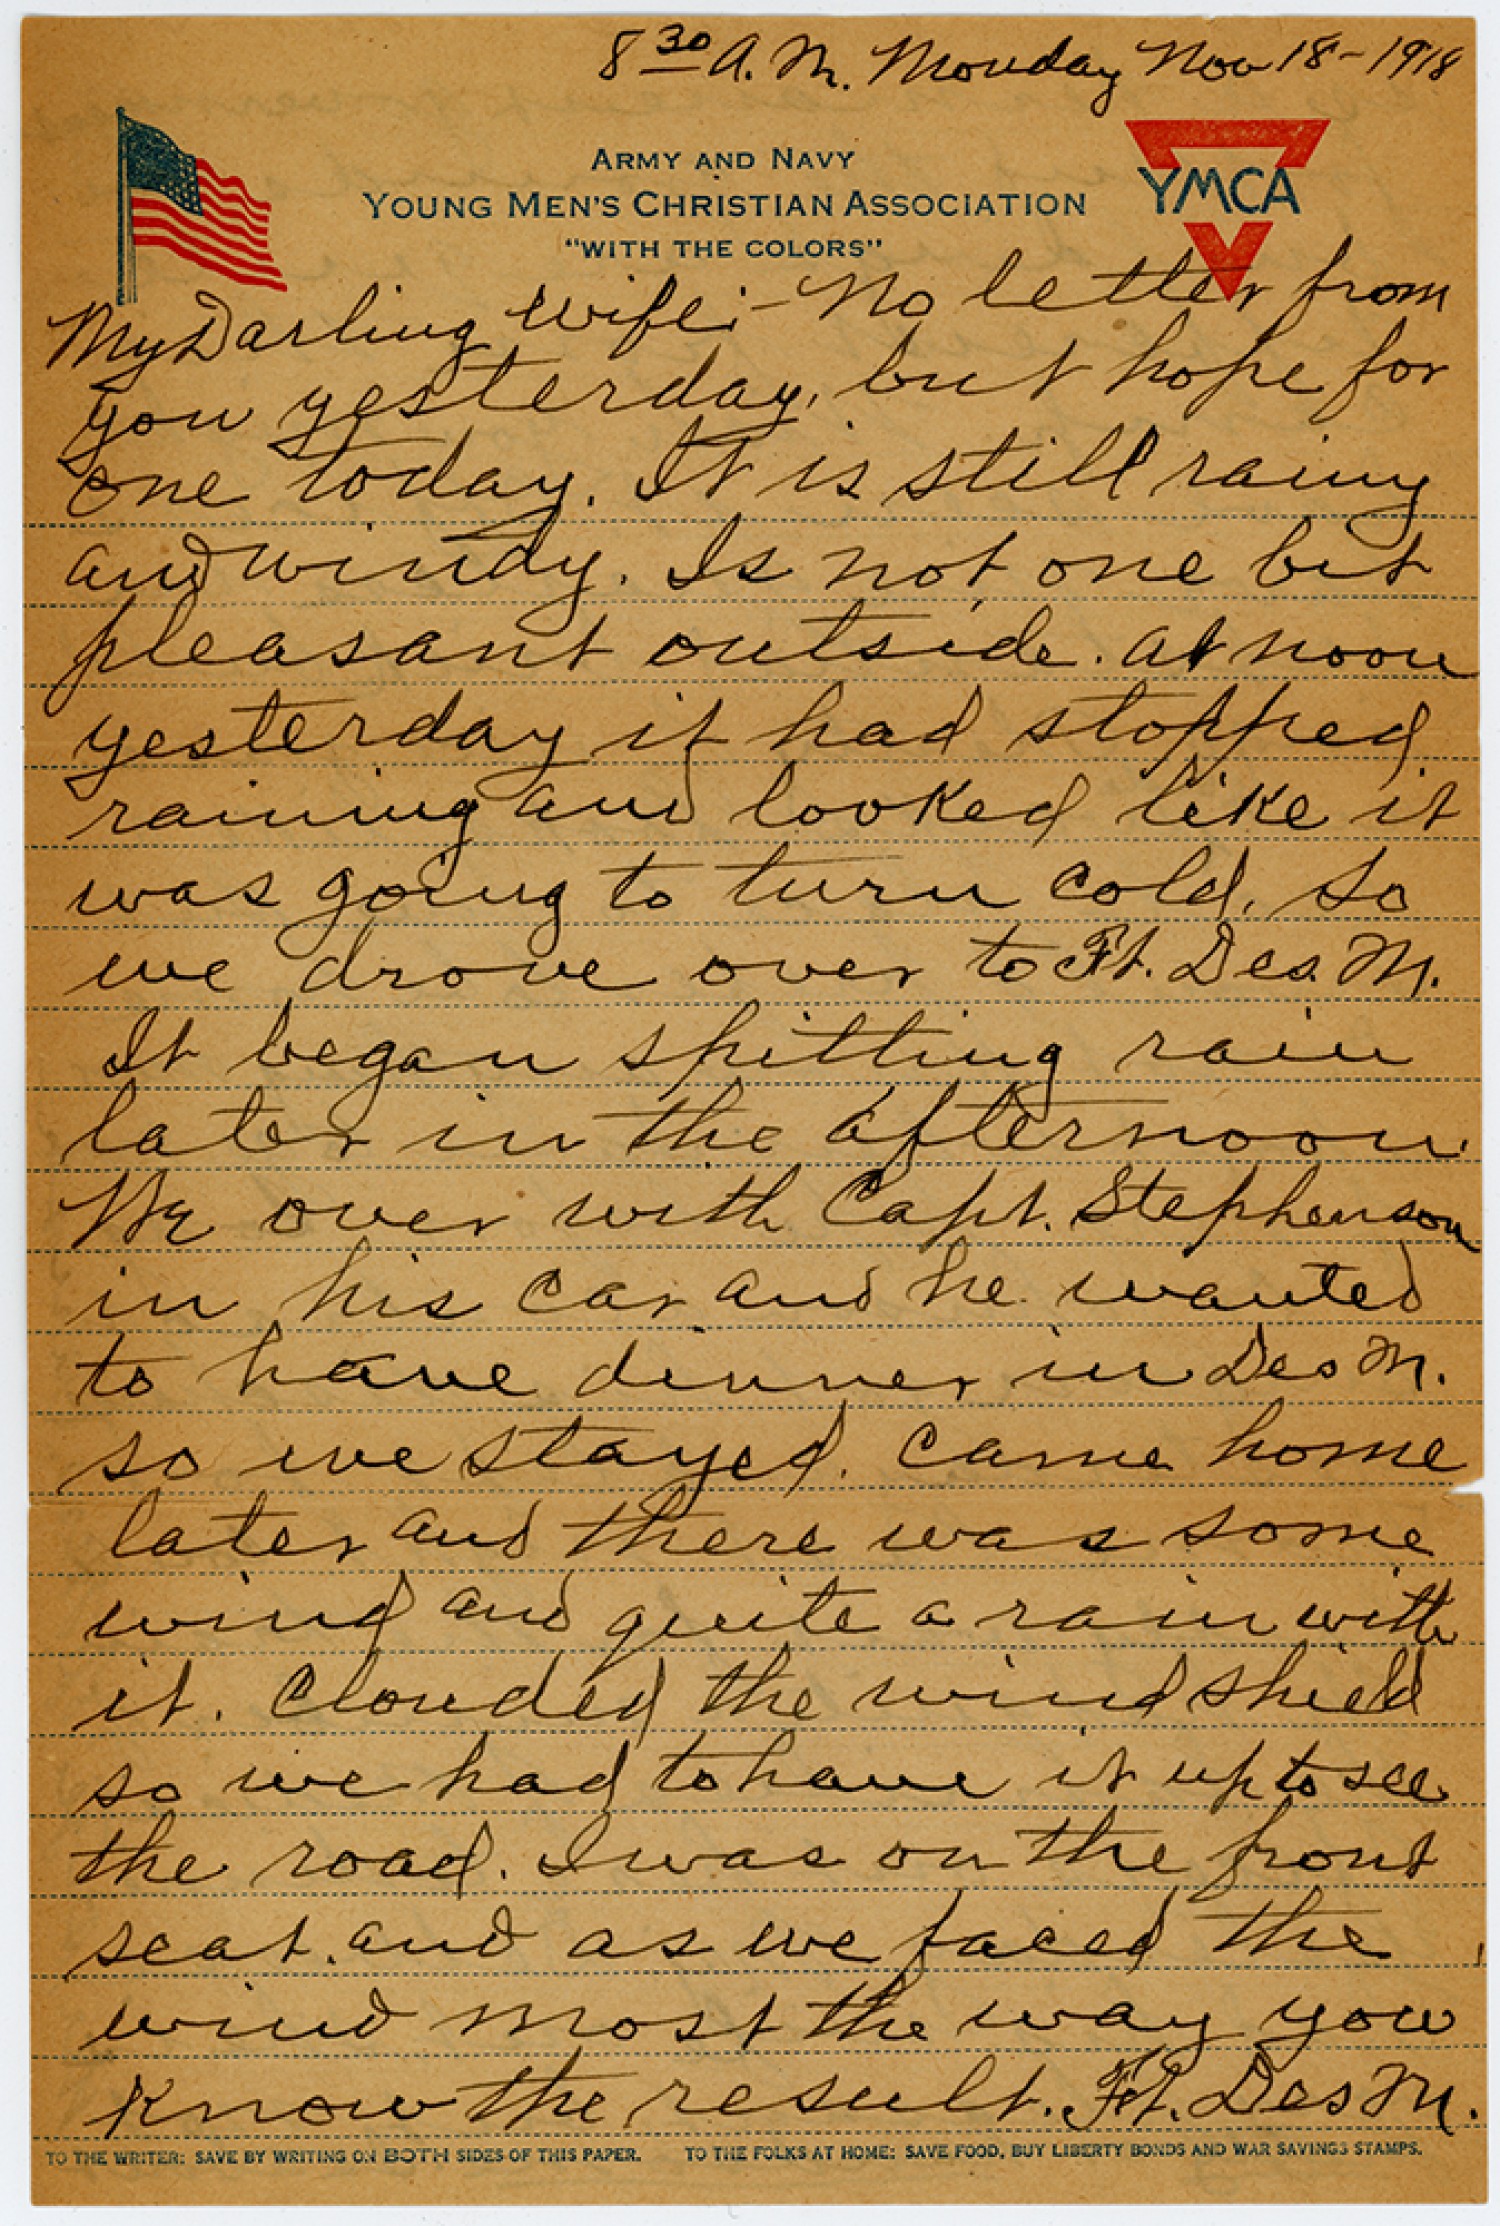 8 30 A.M. Monday Nov 18-1918
ARMY AND NAVY
YOUNG MEN'S CHRISTIAN ASSOCIATION
"WITH THE COLORS"
YMCA
My Darling Wife:- No letter from
you yesterday, but hope for
one today. It is still rainy
and windy. Is not one bit
pleasant outside. At noon
yesterday it had stopped
raining and looked like it
was going to turn cold, so
we drove over to Ft. Des M.
It began spitting rain
later in the afternoon.
We over with Capt. Stephenson
in his car and he wanted
to have dinner in Des M.
so we stayed. Came home
later and there was some
wind and quite a rain with
it. Clouded the windshield
so we had to have it up to see
the road. I was on the front
seat. and as we faced the
wind most the way you
know the result. Ft. Des M.
TO THE WRITER: SAVE BY WRITING ON BOTH SIDES OF THIS PAPER. TO THE FOLKS AT HOME: SAVE FOOD, BUY LIBERTY BONDS AND WAR SAVINGS STAMPS.